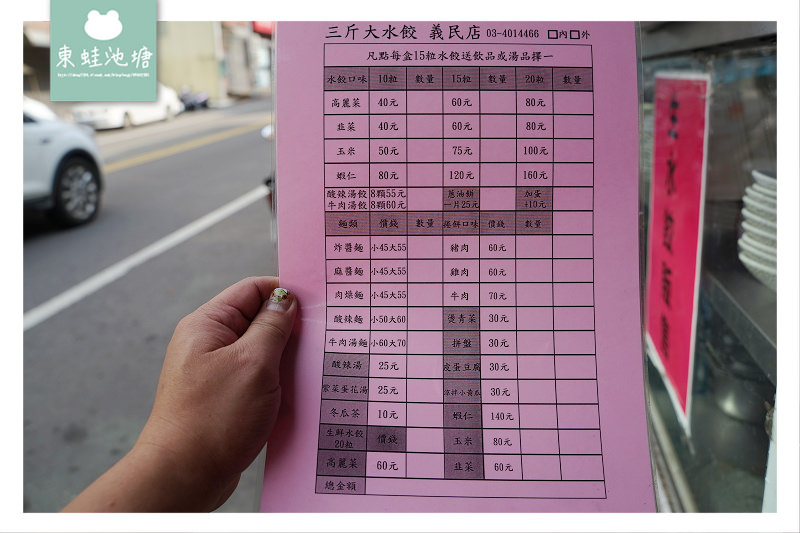 東蛙池塘
三斤大水餃 義民店 03-4014466 □內□外
凡點每盒15粒水餃送飲品或湯品擇一
水餃口味 10粒 數量 15粒 數量 20粒 數量
高麗菜 40元 60元 80元
韭菜 40元 60元 80元
玉米 50元 75元 100元
蝦仁 80元 120元 160元
酸辣湯餃 8顆55元 蔥油餅 加蛋
牛肉湯餃 8顆60元 一片25元 +10元
麵類 價錢 數量 餡餅口味 價錢 數量
炸醬麵 小45大55 豬肉 60元
麻醬麵 小45大55 雞肉 60元
肉燥麵 小45大55 牛肉 70元
酸辣麵 小50大60 燙青菜 30元
牛肉湯麵 小60大70 拼盤 30元
酸辣湯 25元 皮蛋豆腐 30元
紫菜蛋花湯 25元 涼拌小黃瓜 30元
冬瓜茶 10元 蝦仁 140元
生鮮水餃 20粒 價錢 玉米 80元
高麗菜 60元 韭菜 60元
總金額